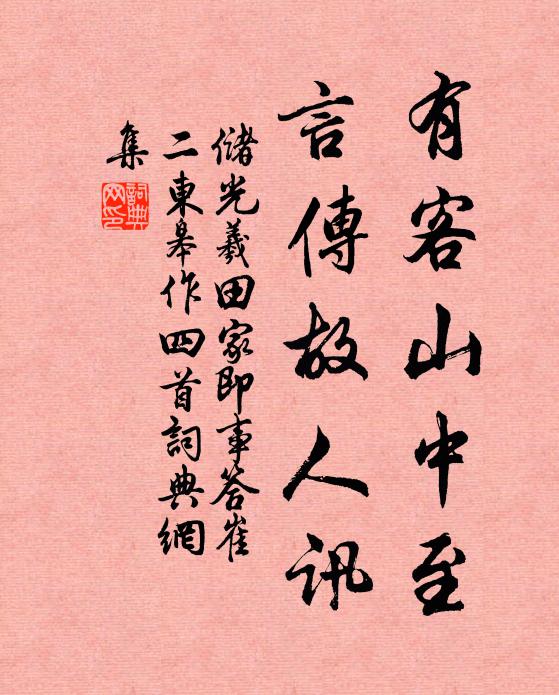 有客山中至
言傳故人訊
儲光羲田家即事答崔
二東皋作四首詞典網
集
詞典網印